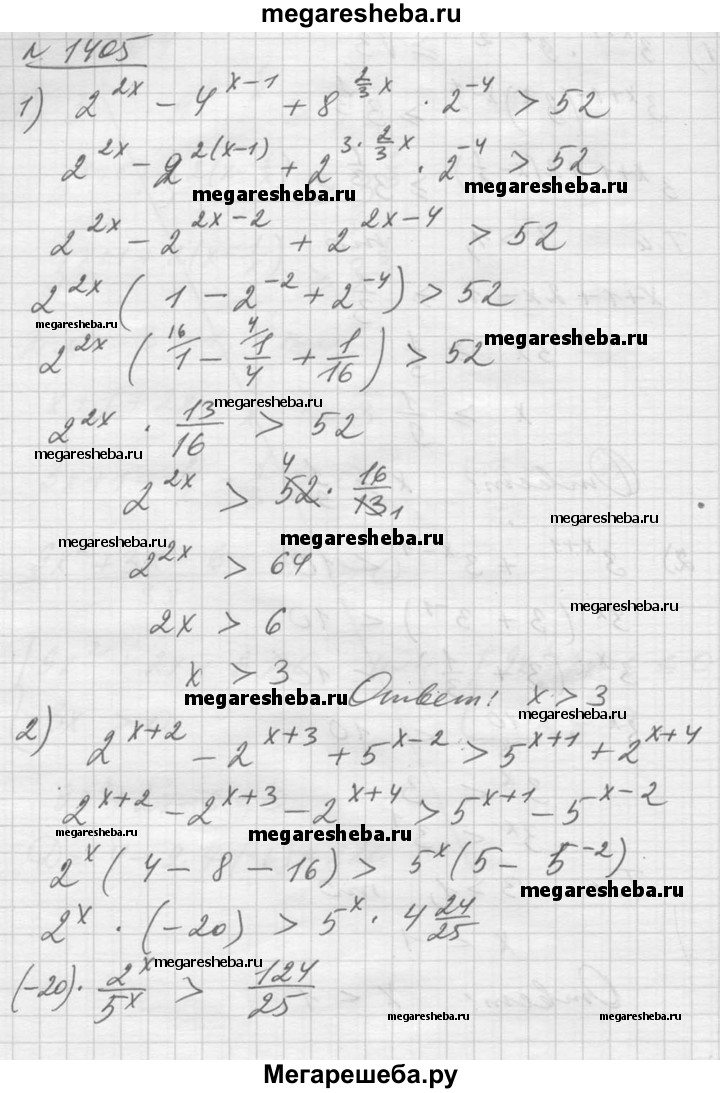 megaresheba.ru
№ 1405
1) 2^{2x} - 4^{x-1} + 8^{\frac{2}{3}x} · 2^{-4} > 52
2^{2x} - 2^{2(x-1)} + 2^{3·\frac{2}{3}x} · 2^{-4} > 52
megaresheba.ru megaresheba.ru
2^{2x} - 2^{2x-2} + 2^{2x-4} > 52
2^{2x} (1 - 2^{-2} + 2^{-4}) > 52
megaresheba.ru megaresheba.ru
2^{2x} (\frac{16}{1} - \frac{4}{1}\frac{1}{4} + \frac{1}{16}) > 52
megaresheba.ru
2^{2x} · \frac{13}{16} > 52
megaresheba.ru
2^{2x} > 52^4 · \frac{16}{13_1}
megaresheba.ru
megaresheba.ru
2^{2x} > 64
megaresheba.ru
2x > 6
x > 3
megaresheba.ru
Ответ: x > 3
megaresheba.ru
2) 2^{x+2} - 2^{x+3} + 5^{x-2} > 5^{x+1} + 2^{x+4}
megaresheba.ru
2^{x+2} - 2^{x+3} - 2^{x+4} > 5^{x+1} - 5^{x-2}
megaresheba.ru megaresheba.ru
2^x (4 - 8 - 16) > 5^x (5 - 5^{-2})
megaresheba.ru
2^x · (-20) > 5^x · 4\frac{24}{25}
megaresheba.ru megaresheba.ru
(-20) · \frac{2^x}{5^x} > \frac{124}{25}
megaresheba.ru megaresheba.ru
Мегарешеба.ру